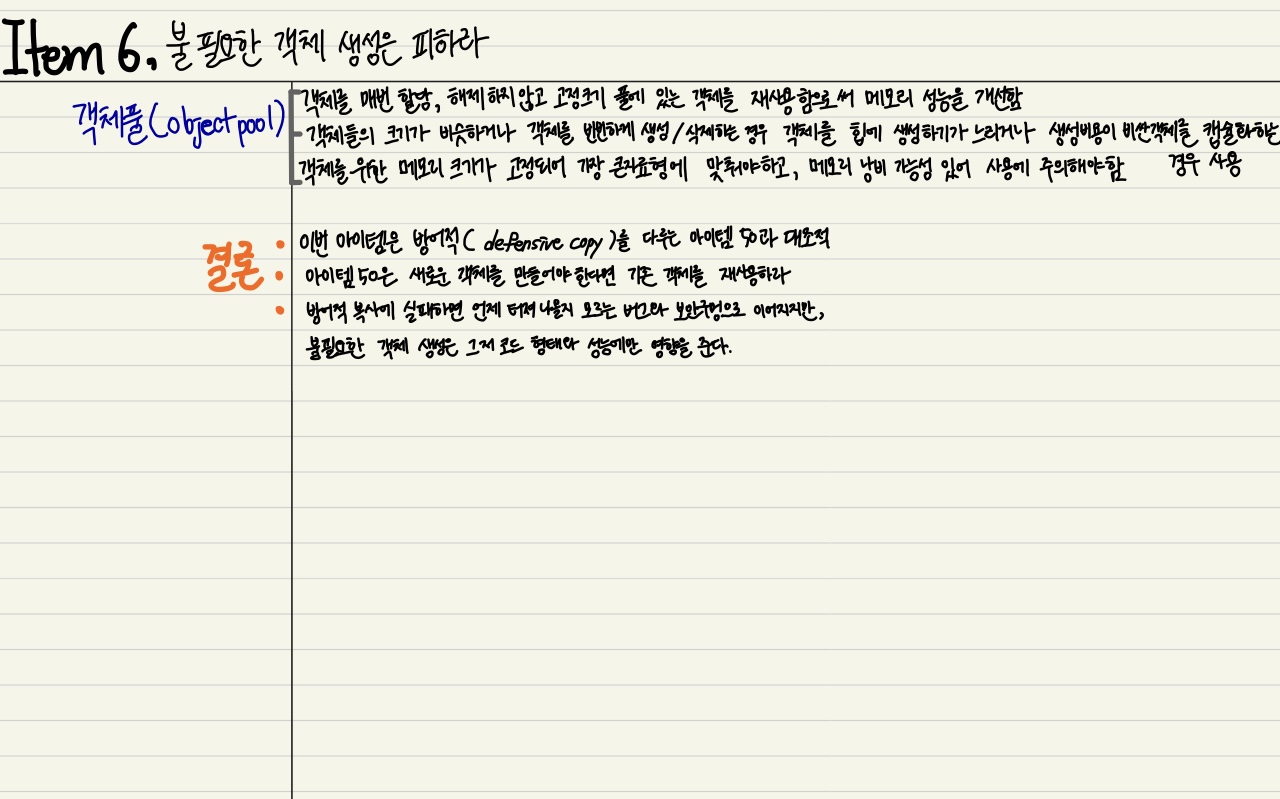 Item 6. 불필요한 객체 생성은 피하라
객체풀(object pool)
객체를 매번 할당, 해제하지 않고 고정크기 풀에 있는 객체를 재사용함으로써 메모리 성능을 개선함
객체들의 크기가 비슷하거나 객체를 빈번하게 생성/삭제하는 경우 객체를 힙에 생성하기가 느리거나 생성비용이 비싼객체를 캡슐화하는
경우 사용
객체를 위한 메모리 크기가 고정되어 가장 큰자료형에 맞춰야하고, 메모리 낭비 가능성 있어 사용에 주의해야함
결론
• 이번 아이템은 방어적( defensive copy )를 다루는 아이템 50과 대조적
• 아이템 50은 새로운 객체를 만들어야 한다면 기존 객체를 재사용하라
• 방어적 복사에 실패하면 언제 터져 나올지 모르는 버그와 보안구멍으로 이어지지만,
불필요한 객체 생성은 그저 코드 형태와 성능에만 영향을 준다.